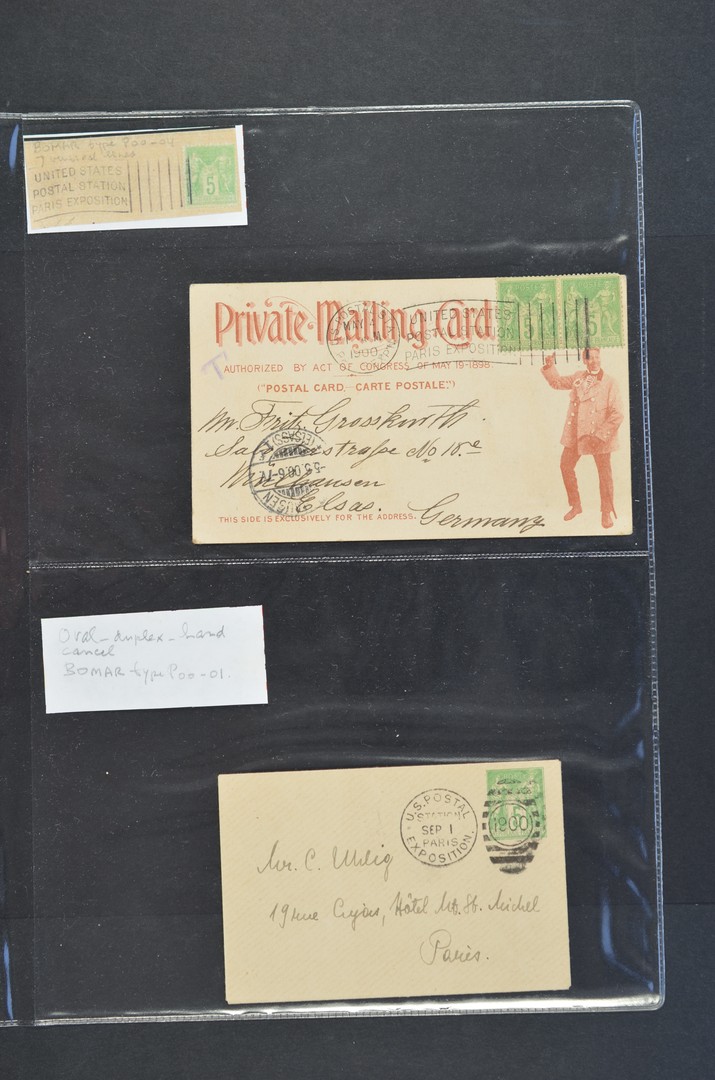 BOMAR type P00-04
7 vertical lines
UNITED STATES
POSTAL STATION
PARIS EXPOSITION
5
Private Mailing Card
MAY
1900
UNITED STATES
POSTAL STATION
PARIS EXPOSITION
5
5
T
AUTHORIZED BY ACT OF CONGRESS OF MAY 19-1898.
("POSTAL CARD,—CARTE POSTALE.")
Mr. Fritz Grosskurth.
No
(ELSASS)
Elsas.
Germany
THIS SIDE IS EXCLUSIVELY FOR THE ADDRESS.
Oval-duplex-hand
cancel
BOMAR type P00-01.
U.S. POSTAL
STATION
SEP 1
PARIS
EXPOSITION.
1900
Mr. C. Uhlig
19 rue Cujas, Hôtel Mt. St. Michel
Paris.